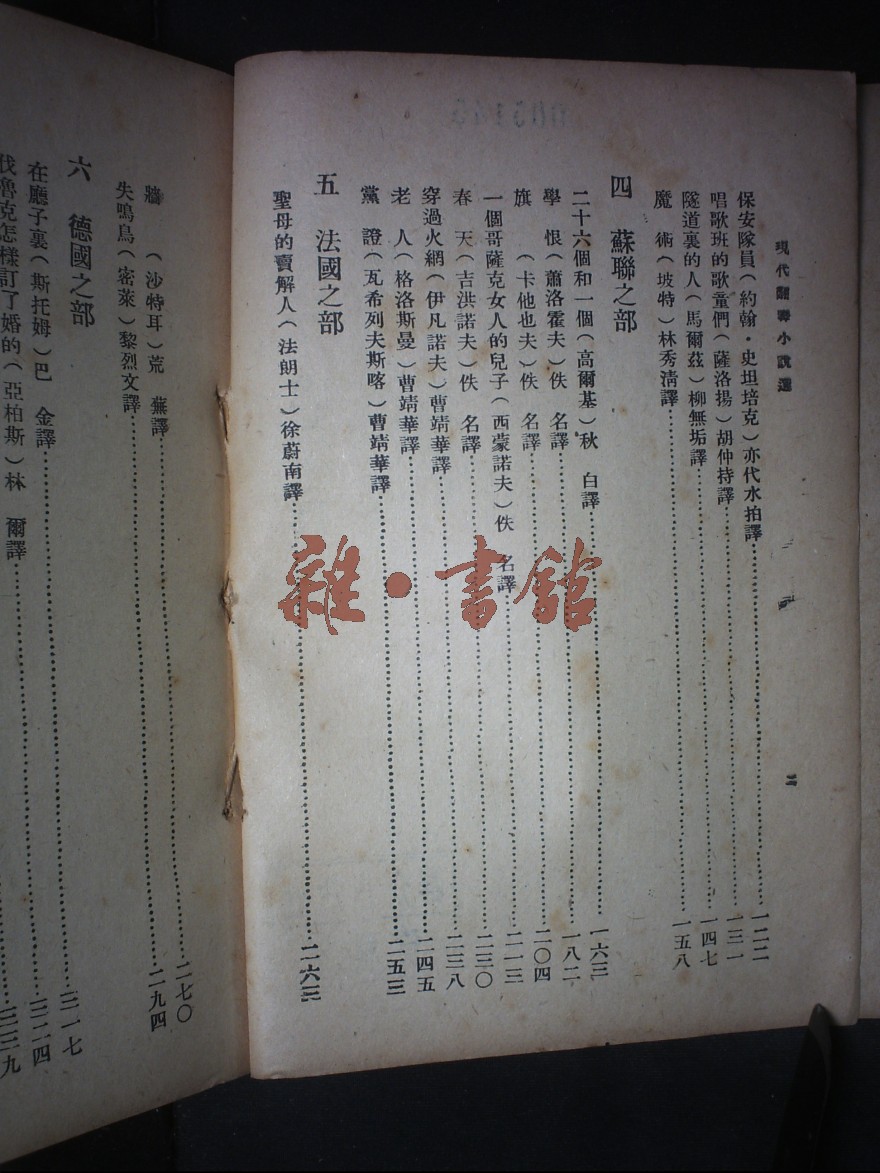 現代翻譯小說選
二
保安隊員（約翰・史坦培克）亦代水拍譯……一二二
唱歌班的歌童們（薩洛揚）胡仲持譯……一三一
隧道裏的人（馬爾茲）柳無垢譯……一四七
魔　術（坡特）林秀清譯……一五八
四　蘇聯之部
二十六個和一個（高爾基）秋　白譯……一六三
學　恨（蕭洛霍夫）佚　名譯……一八二
旗　（卡他也夫）佚　名譯……二〇四
一個哥薩克女人的兒子（西蒙諾夫）佚　名譯……二一三
春　天（吉洪諾夫）佚　名譯……二三〇
穿過火網（伊凡諾夫）曹靖華譯……二三八
老　人（格洛斯曼）曹靖華譯……二四五
黨　證（瓦希列夫斯喀）曹靖華譯……二五三
五　法國之部
聖母的賣解人（法朗士）徐蔚南譯……二六三
牆　（沙特耳）荒　蕪譯……二七〇
失鳴鳥（密萊）黎烈文譯……二九四
六　德國之部……三一七
在廳子裏（斯托姆）巴　金譯……三二四
伐魯克怎樣訂了婚的（亞柏斯）林　爾譯……三三九
雜・書館